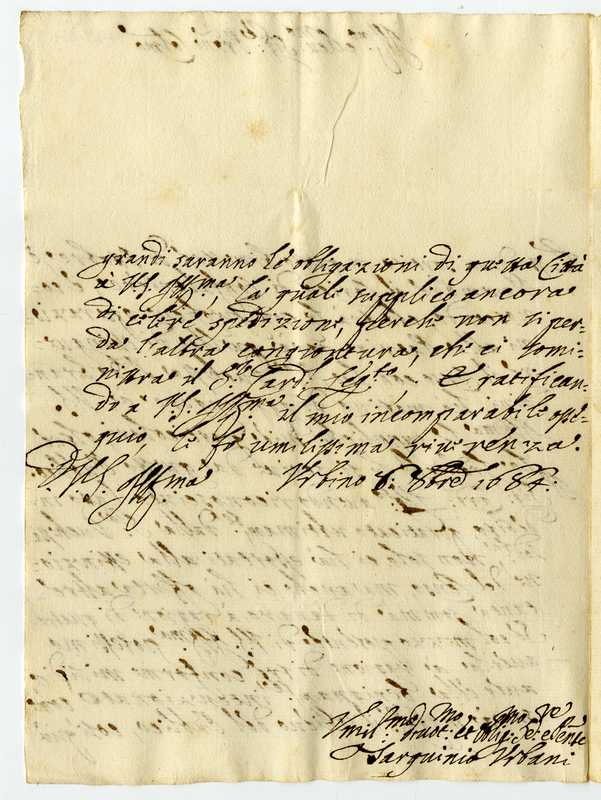 grandi saranno le obligazioni di questa Città
à V.S. Ill.ma, la quale supplico ancora
di celere spedizione, perche non si per-
da l'altra congiontura, che ci somi-
nistra il S.r Card. Leg.to. E ratifican-
do à V.S. Ill.ma il mio incomparabile osse-
quio, le fò umilissima riverenza.
D. V.S. Ill.ma Urbino 8. 8bre 1684.
Umil.mo
devot. et oblig.
Tarquinio Urbani